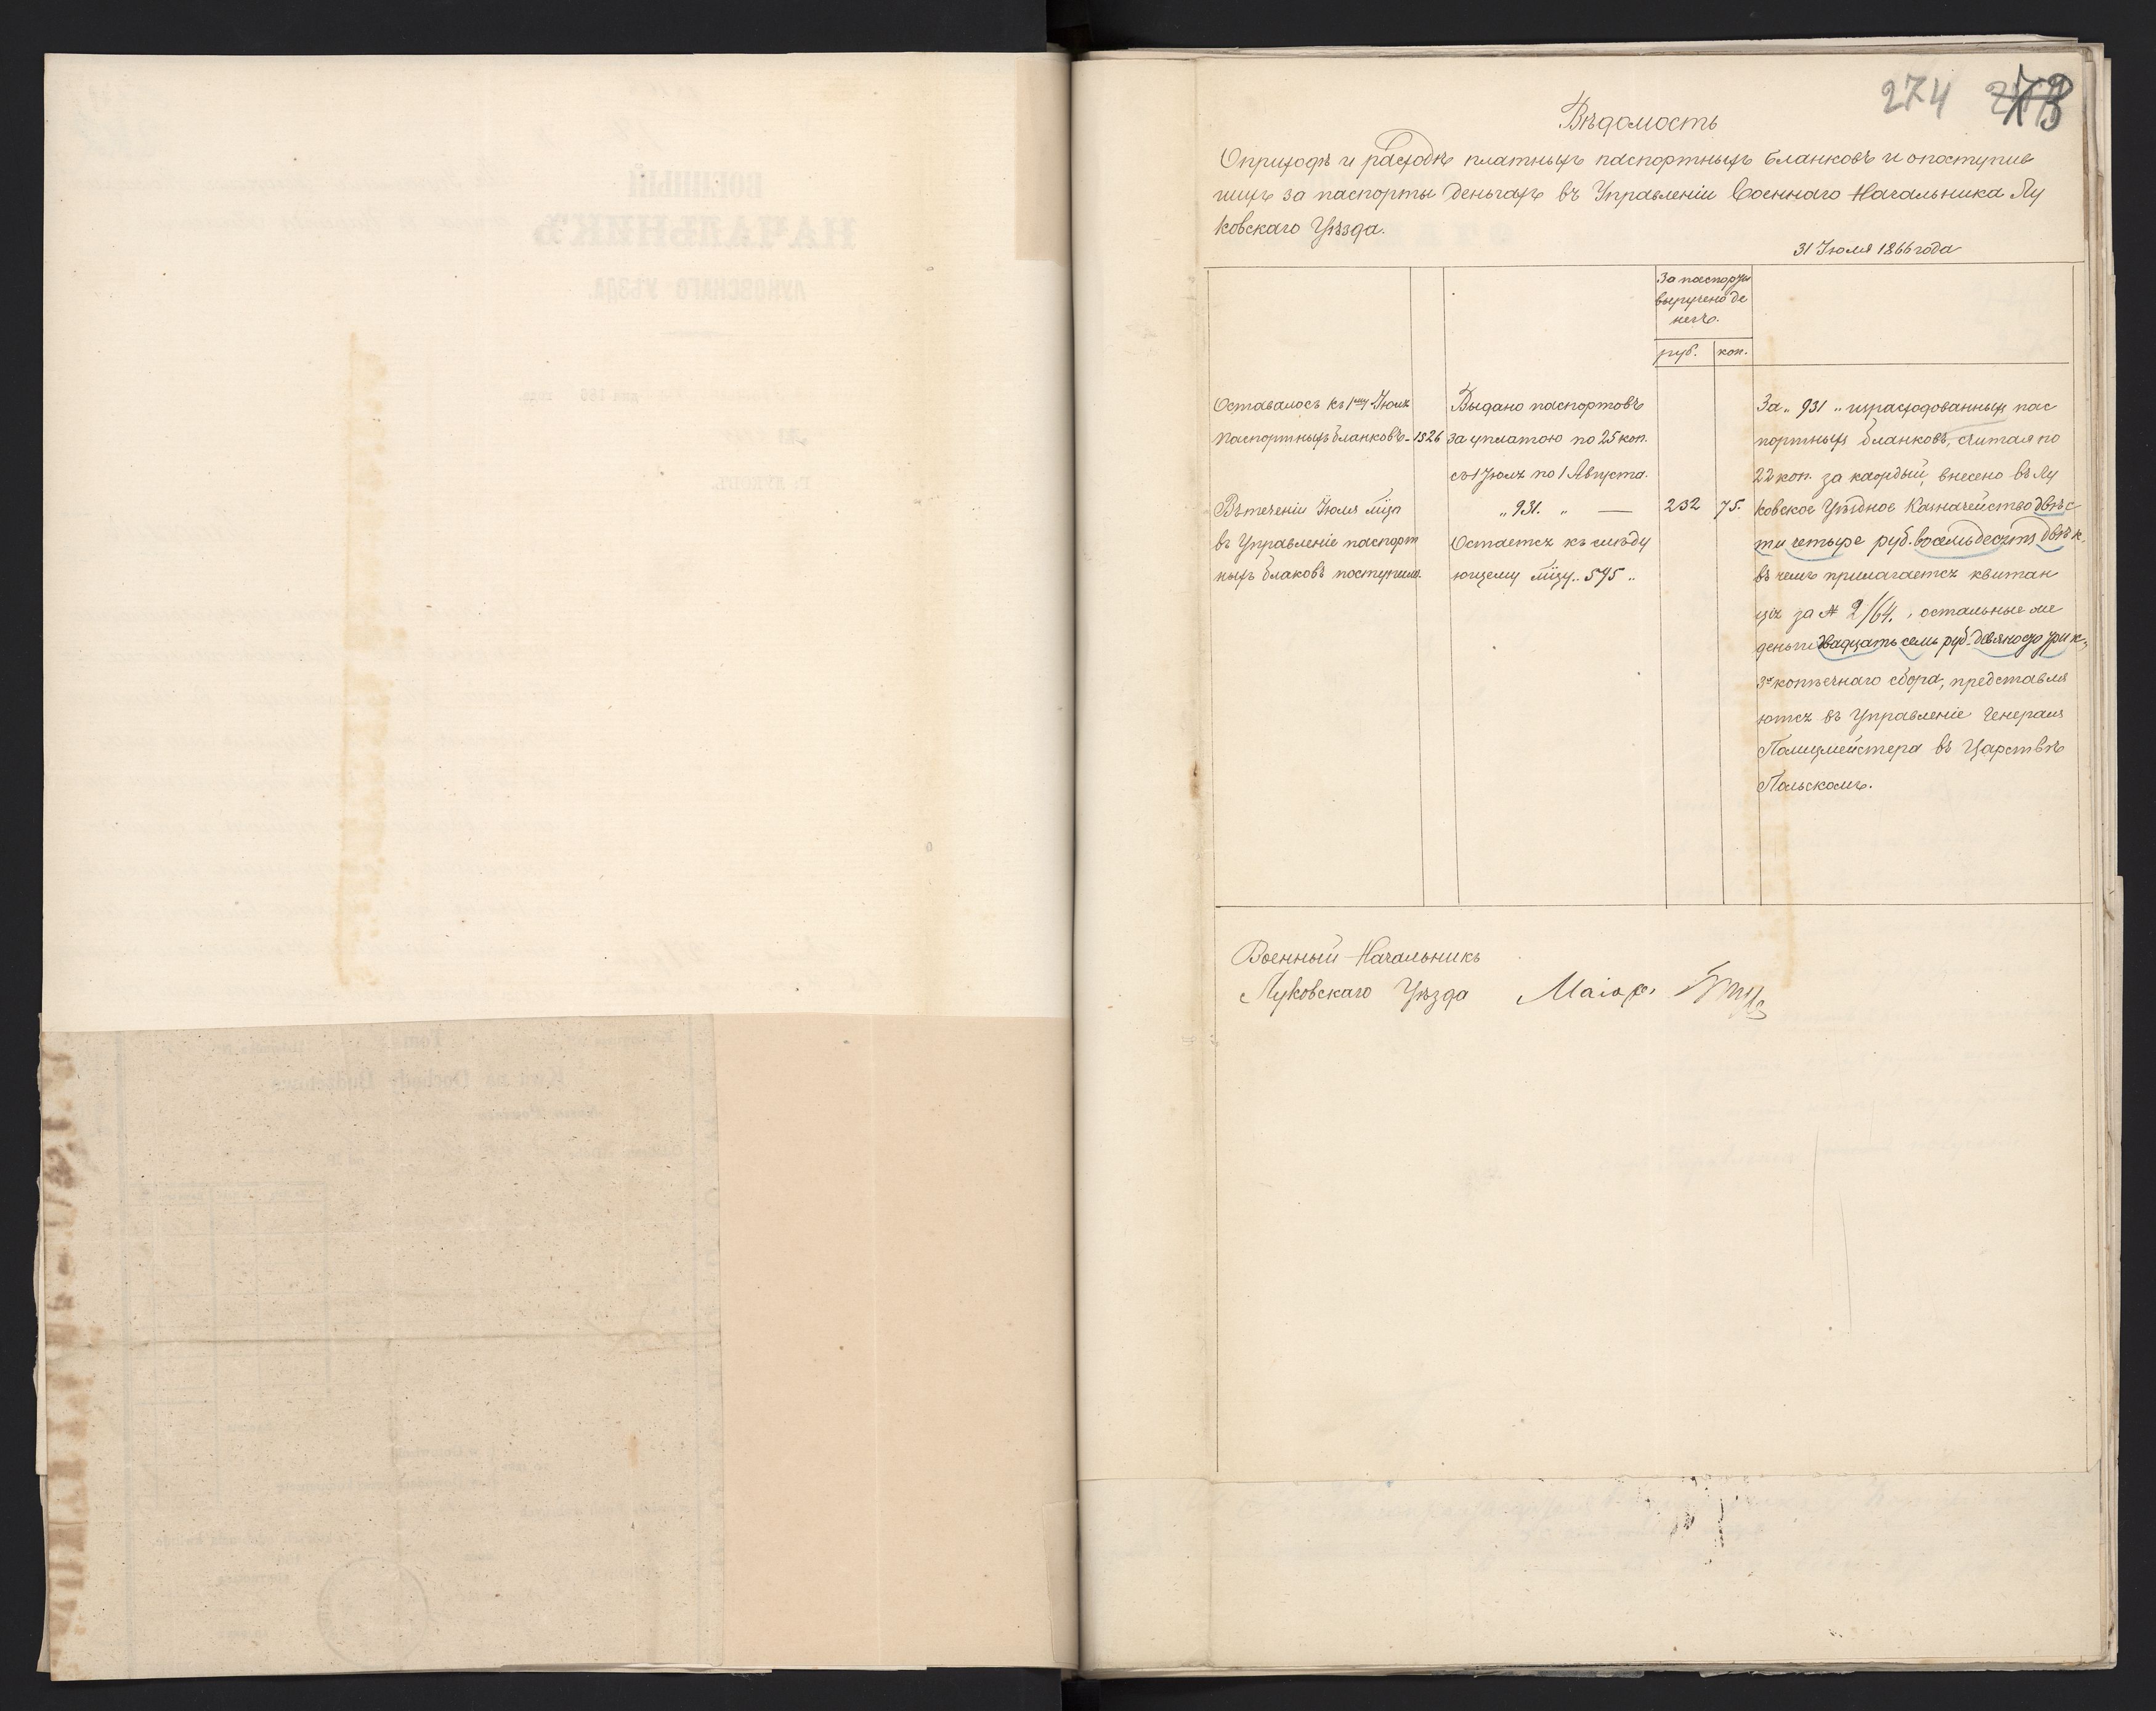 274
Вѣдомость
О приходѣ и расходѣ платныхъ паспортныхъ бланковъ и о поступив
шихъ за паспорты деньгахъ въ Управленіи Военнаго Начальника Лу
ковскаго Уѣзда.
31 Іюля 1866 года
За паспорты
выручено де
негъ.
руб. коп.
Оставалось къ 1му Іюля
паспортныхъ бланковъ - 1526
Въ теченіи Іюля мца
въ Управленіе паспорт
ныхъ блаковъ поступило.
Выдано паспортовъ
за уплатою по 25 коп.
съ 1 Іюля по 1 Августа.
„ 931. „ — 232 75.
Остается къ слѣду
ющему мцу „ 595 „
За „ 931 „ израсходованныхъ пас
портныхъ бланковъ, считая по
22 коп. за каждый, внесено въ Лу
ковское Уѣздное Казначейство двѣс
ти четыре руб. восемьдесятъ двѣ к.
въ чемъ прилагается квитан
ція за № 2/64. , остальные же
деньги двадцать семь руб. девяносто три к.
3х копѣечнаго сбора, представля
ются въ Управленіе Генералъ
Полицмейстера въ Царствѣ
Польскомъ.
Военный Начальникъ
Луковскаго Уѣзда Маіоръ
ВОЕННЫЙ
НАЧАЛЬНИКЪ
ЛУКОВСКАГО УѢЗДА.